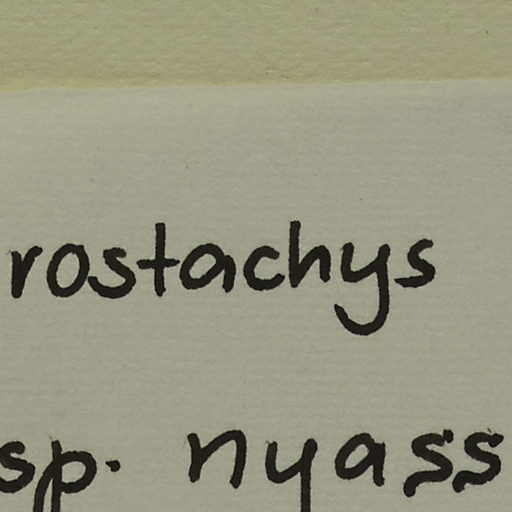 rostachys
sp. nyass